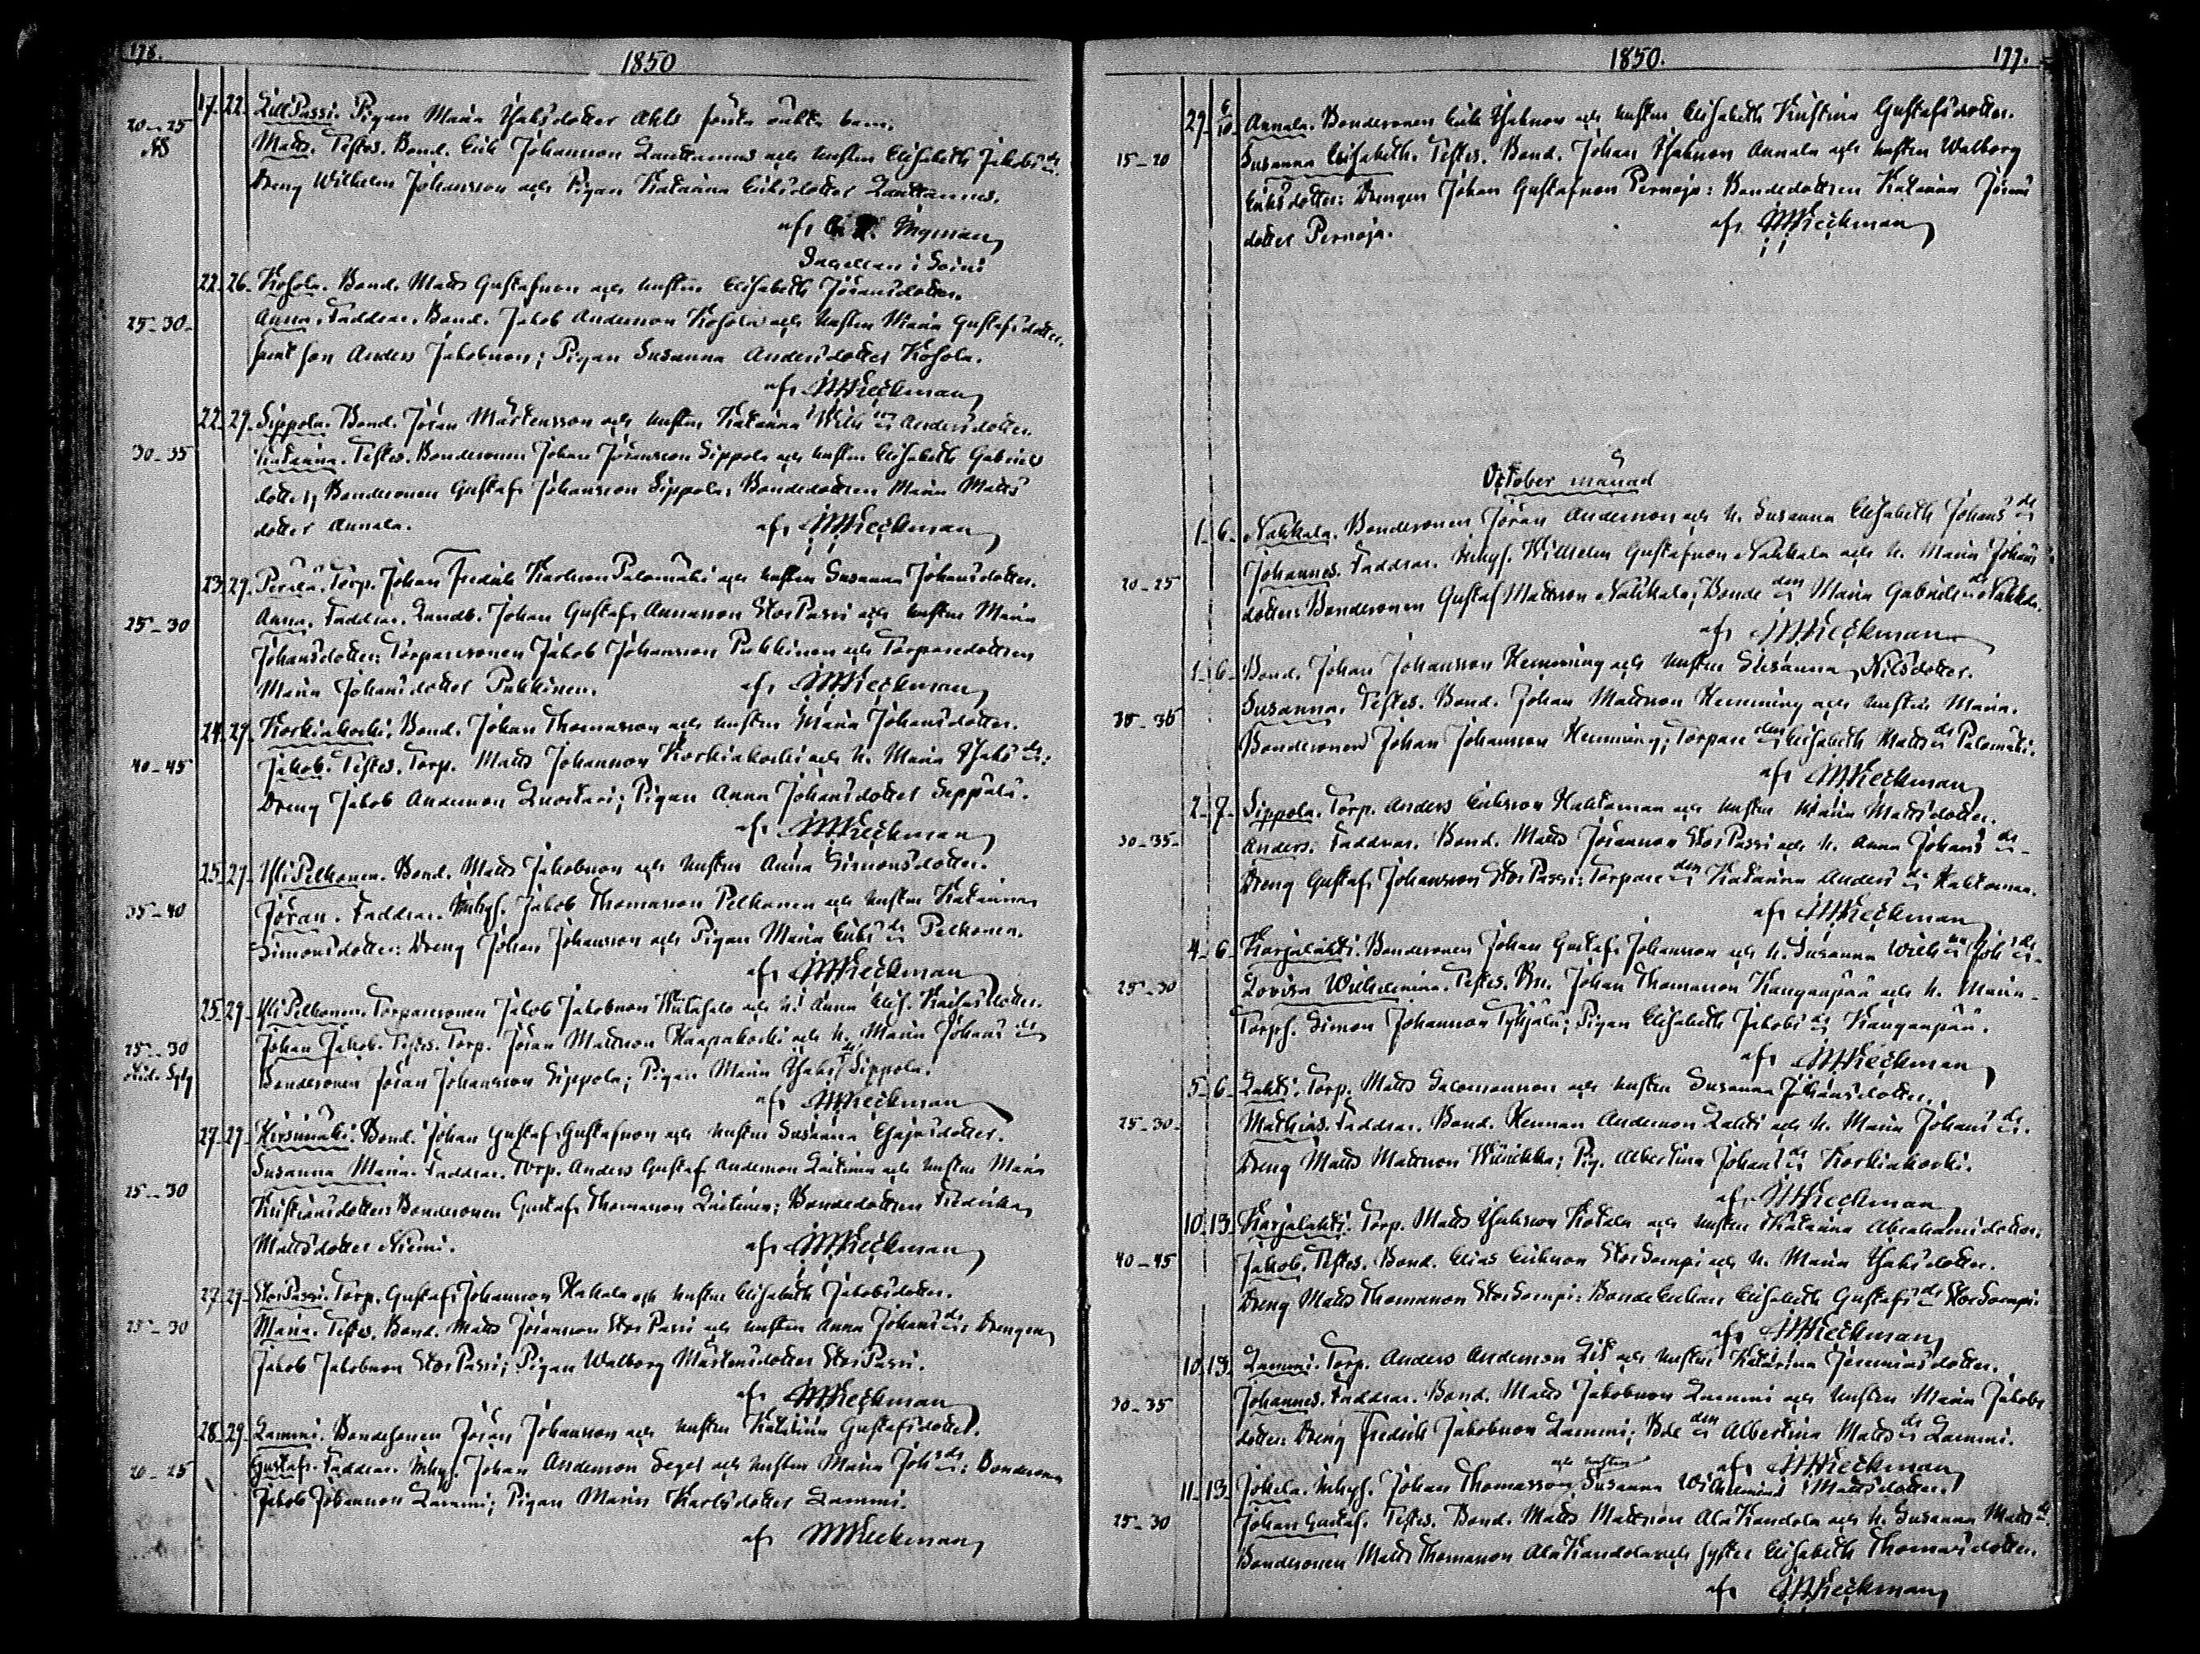 176.
1850
17. 22. LillPassi. Pigan Maria Isaksdotter Ahls
20-25 Matts. Testes. Bond. Erik Johansson Lauttamus och hustru Elisabeth Jakobs dr
Dreng Wilhelm Johansson och Pigan Katarina Eriksdotter Lauttamus.
af Nyman
i Soini
22. 26. Kohola. Bond. Matts Gustafsson och hustru Elisabeth Jöransdotter.
25-30 Anna. Faddrar. Bond. Jakob Andersson Kohola och hustru Maria Gustafsdotter
samt son Anders Jakobsson; Pigan Susanna Andersdotter Kohola.
af Keckman
22. 29. Sippola. Bond. Jöran Mårtensson och hustru Katarina Wilh na Andersdotter.
30-35 Katarina. Testes. Bondesonen Johan Jöransson Sippola och hustru Elisabeth Gabriels
dotter; Bondesonen Gustaf Johansson Sippola; Bondedottren Maria Matts
dotter Annala. af Keckman
23. 29. Perälä. Torp. Johan Fredrik Karlsson Palomäki och hustru Susanna Johansdotter.
25-30 Anna. Faddrar. Landb. Johan Gustaf Annasson StorPassi och hustru Maria
Johansdotter; Torparesonen Jakob Johansson Pukkinen och Torparedottren
Maria Johansdotter Pukkinen. af Keckman
24. 29. Korkiakoski. Bond. Johan Thomasson och hustru Maria Johansdotter.
40-45 Jakob. Testes. Torp. Matts Johansson Korkiakoski och h. Maria Isaks dr:
Dreng Jakob Andersson Luostari; Pigan Anna Johansdotter Seppälä.
af Keckman
25. 29. YliPelkonen. Bond. Matts Jakobsson och hustru Anna Simonsdotter.
35-40 Jöran. Faddrar. Inhys. Jakob Thomasson Pelkonen och hustru Katarina
Simonsdotter: Dreng Johan Johansson och Pigan Maria Eriks dr Pelkonen.
af Keckman
25. 29. YliPelkonen. Torparesonen Jakob Jakobsson och h. Anna Elis.
25-30 Johan Jakob. Testes. Torp. Jöran Mattsson Haapakoski och h. Maria Johans dr
Bondesonen Jöran Johansson Sippola; Pigan Maria Isaks dr Sippola.
af Keckman
27. 29. Hirsimäki. Bond. Johan Gustaf Gustafsson och hustru Susanna Esajasdotter.
25-30 Susanna Maria. Faddrar. Torp. Anders Gustaf Andersson Laitinen och hustru Maria
Kristiansdotter; Bondesonen Gustaf Thomasson Laitinen; Bondedottren Fredrika
Mattsdotter Niemi. af Keckman
27. 29. StorPassi. Torp. Gustaf Johansson Hakala och hustru Elisabeth Jakobsdotter.
25-30 Maria. Testes. Bond. Matts Jöransson StorPassi och hustru Anna Johans dr: Drengen
Jakob Jakobsson StorPassi; Pigan Walborg Mårtensdotter StorPassi.
af Keckman
28. 29. Lammi. Bondesonen Jöran Johansson och hustru Katarina Gustafsdotter.
20-25 Gustaf. Faddrar. Inhys. Johan Andersson Seger och hustru Maria Joh dr: Bondesonen
Jakob Johansson Lammi; Pigan Maria Karlsdotter Lammi.
af Keckman
1850.
177.
29. 6/10 Annala. Bondesonen Erik Isaksson och hustru Elisabeth Kristina Gustafsdotter.
15-20 Susanna Elisabeth. Testes. Bond. Johan Isaksson Annala och hustru Walborg
Eriksdotter: Drengen Johan Gustafsson Pernaja: Bondedottren Katarina Jörans
dotter Pernaja. af Keckman
October månad
1. 6. Nakkala. Bondesonen Jöran Andersson och h. Susanna Elisabeth Johans dr
20-25 Johannes. Faddrar. Inhys. Wilhelm Gustafsson Nakkala och h. Maria Johans
dotter: Bondesonen Gustaf Mattsson Nakkala; Bonde den Maria Gabriels dr Nakkala.
af Keckman
1. 6. Bond. Johan Johansson Hemming och hustru Susanna Nilsdotter.
30-35 Susanna. Testes. Bond. Johan Mattsson Hemming och hustru Maria.
Bondesonen Johan Johansson Hemming; Torpare den Elisabeth Matts dr Palomäki.
af Keckman
2. 7. Sippola. Torp. Anders Eriksson Hakkaman och hustru Maria Mattsdotter.
30-35 Anders. Faddrar. Bond. Matts Jöransson StorPassi och h. Anna Johans dr
Dreng Gustaf Johansson StorPassi: Torpare den Katarina Anders dr
af Keckman
4. 6. Karjalahti. Bondesonen Johan Gustaf Johansson och h. Susanna Wilh na Joh dr
25-30 Lovisa Wilhelmina. Testes. Bn. Johan Thomasson Kangaspää och h. Maria
Torps. Simon Johansson Tyhjälä; Pigan Elisabeth Jakobs dr Kangaspää.
af Keckman
5. 6. Lahti. Torp. Matts Salomonsson och hustru Susanna Johansdotter.
25-30 Mathias. Faddrar. Bond. Herman Andersson Lahti och h. Maria Johans dr.
Dreng Matts Mattsson; Pig. Albertina Johans dr Korkiakoski.
af Keckman
10. 13. Karjalahti. Torp. Matts Isaksson Kotala och hustru Katarina Abrahamsdotter.
40-45 Jakob. Testes. Bond. Elias Eriksson StorSorupi och h. Maria Isaksdotter.
Dreng Matts Thomasson StorSorupi: Bondeenkan Elisabeth Gustafs dr StorSorupi.
af Keckman
10. 13. Lammi. Torp. Anders Andersson Lit och hustru Katarina Jeremiasdotter.
30-35 Johannes. Faddrar. Bond. Matts Jakobsson Lammi och hustru Maria Jakobs
dotter: Dreng Fredrik Jakobsson Lammi; Bde den Albertina Matts dr Lammi.
af Keckman
11. 13. Jokela. Inhys. Johan Thomasson och hustru Susanna Wilhelmina Mattsdotter.
25-30 Johan Gustaf. Testes. Bond. Matts Mattsson AlaKandola och h. Susanna Matts dr.
Bondesonen Matts Thomasson AlaKandola och syster Elisabeth Thomasdotter.
af Keckman